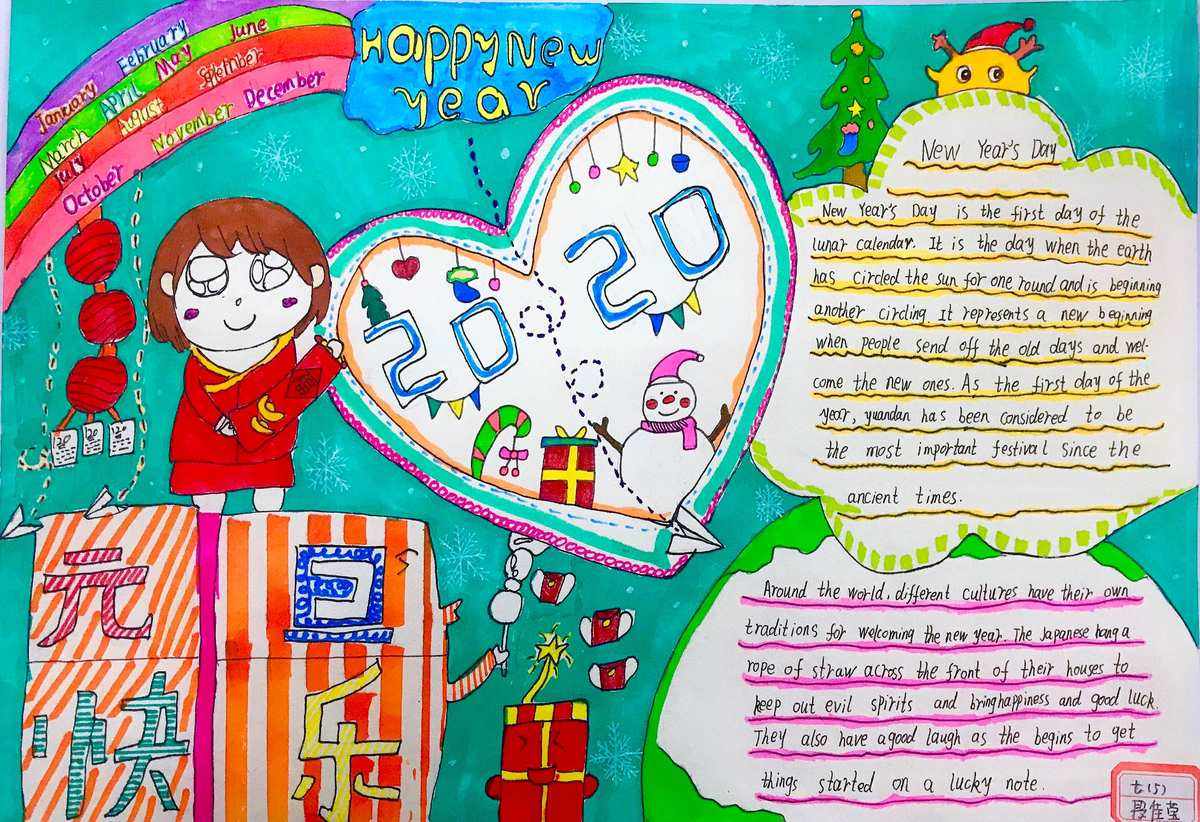 January February
March April May June
July August September
October November December
Happy New
year
20
20
元旦
快乐
New Year's Day
New Year's Day is the first day of the
lunar calendar. It is the day when the earth
has circled the sun for one round and is beginning
another circling. It represents a new beginning
when people send off the old days and wel-
come the new ones. As the first day of the
year, yuandan has been considered to be
the most important festival since the
ancient times.
Around the world, different cultures have their own
traditions for welcoming the new year. The Japanese hang a
rope of straw across the front of their houses to
keep out evil spirits and bring happiness and good luck.
They also have a good laugh as the begins to get
things started on a lucky note.
七(5)
段佳莹